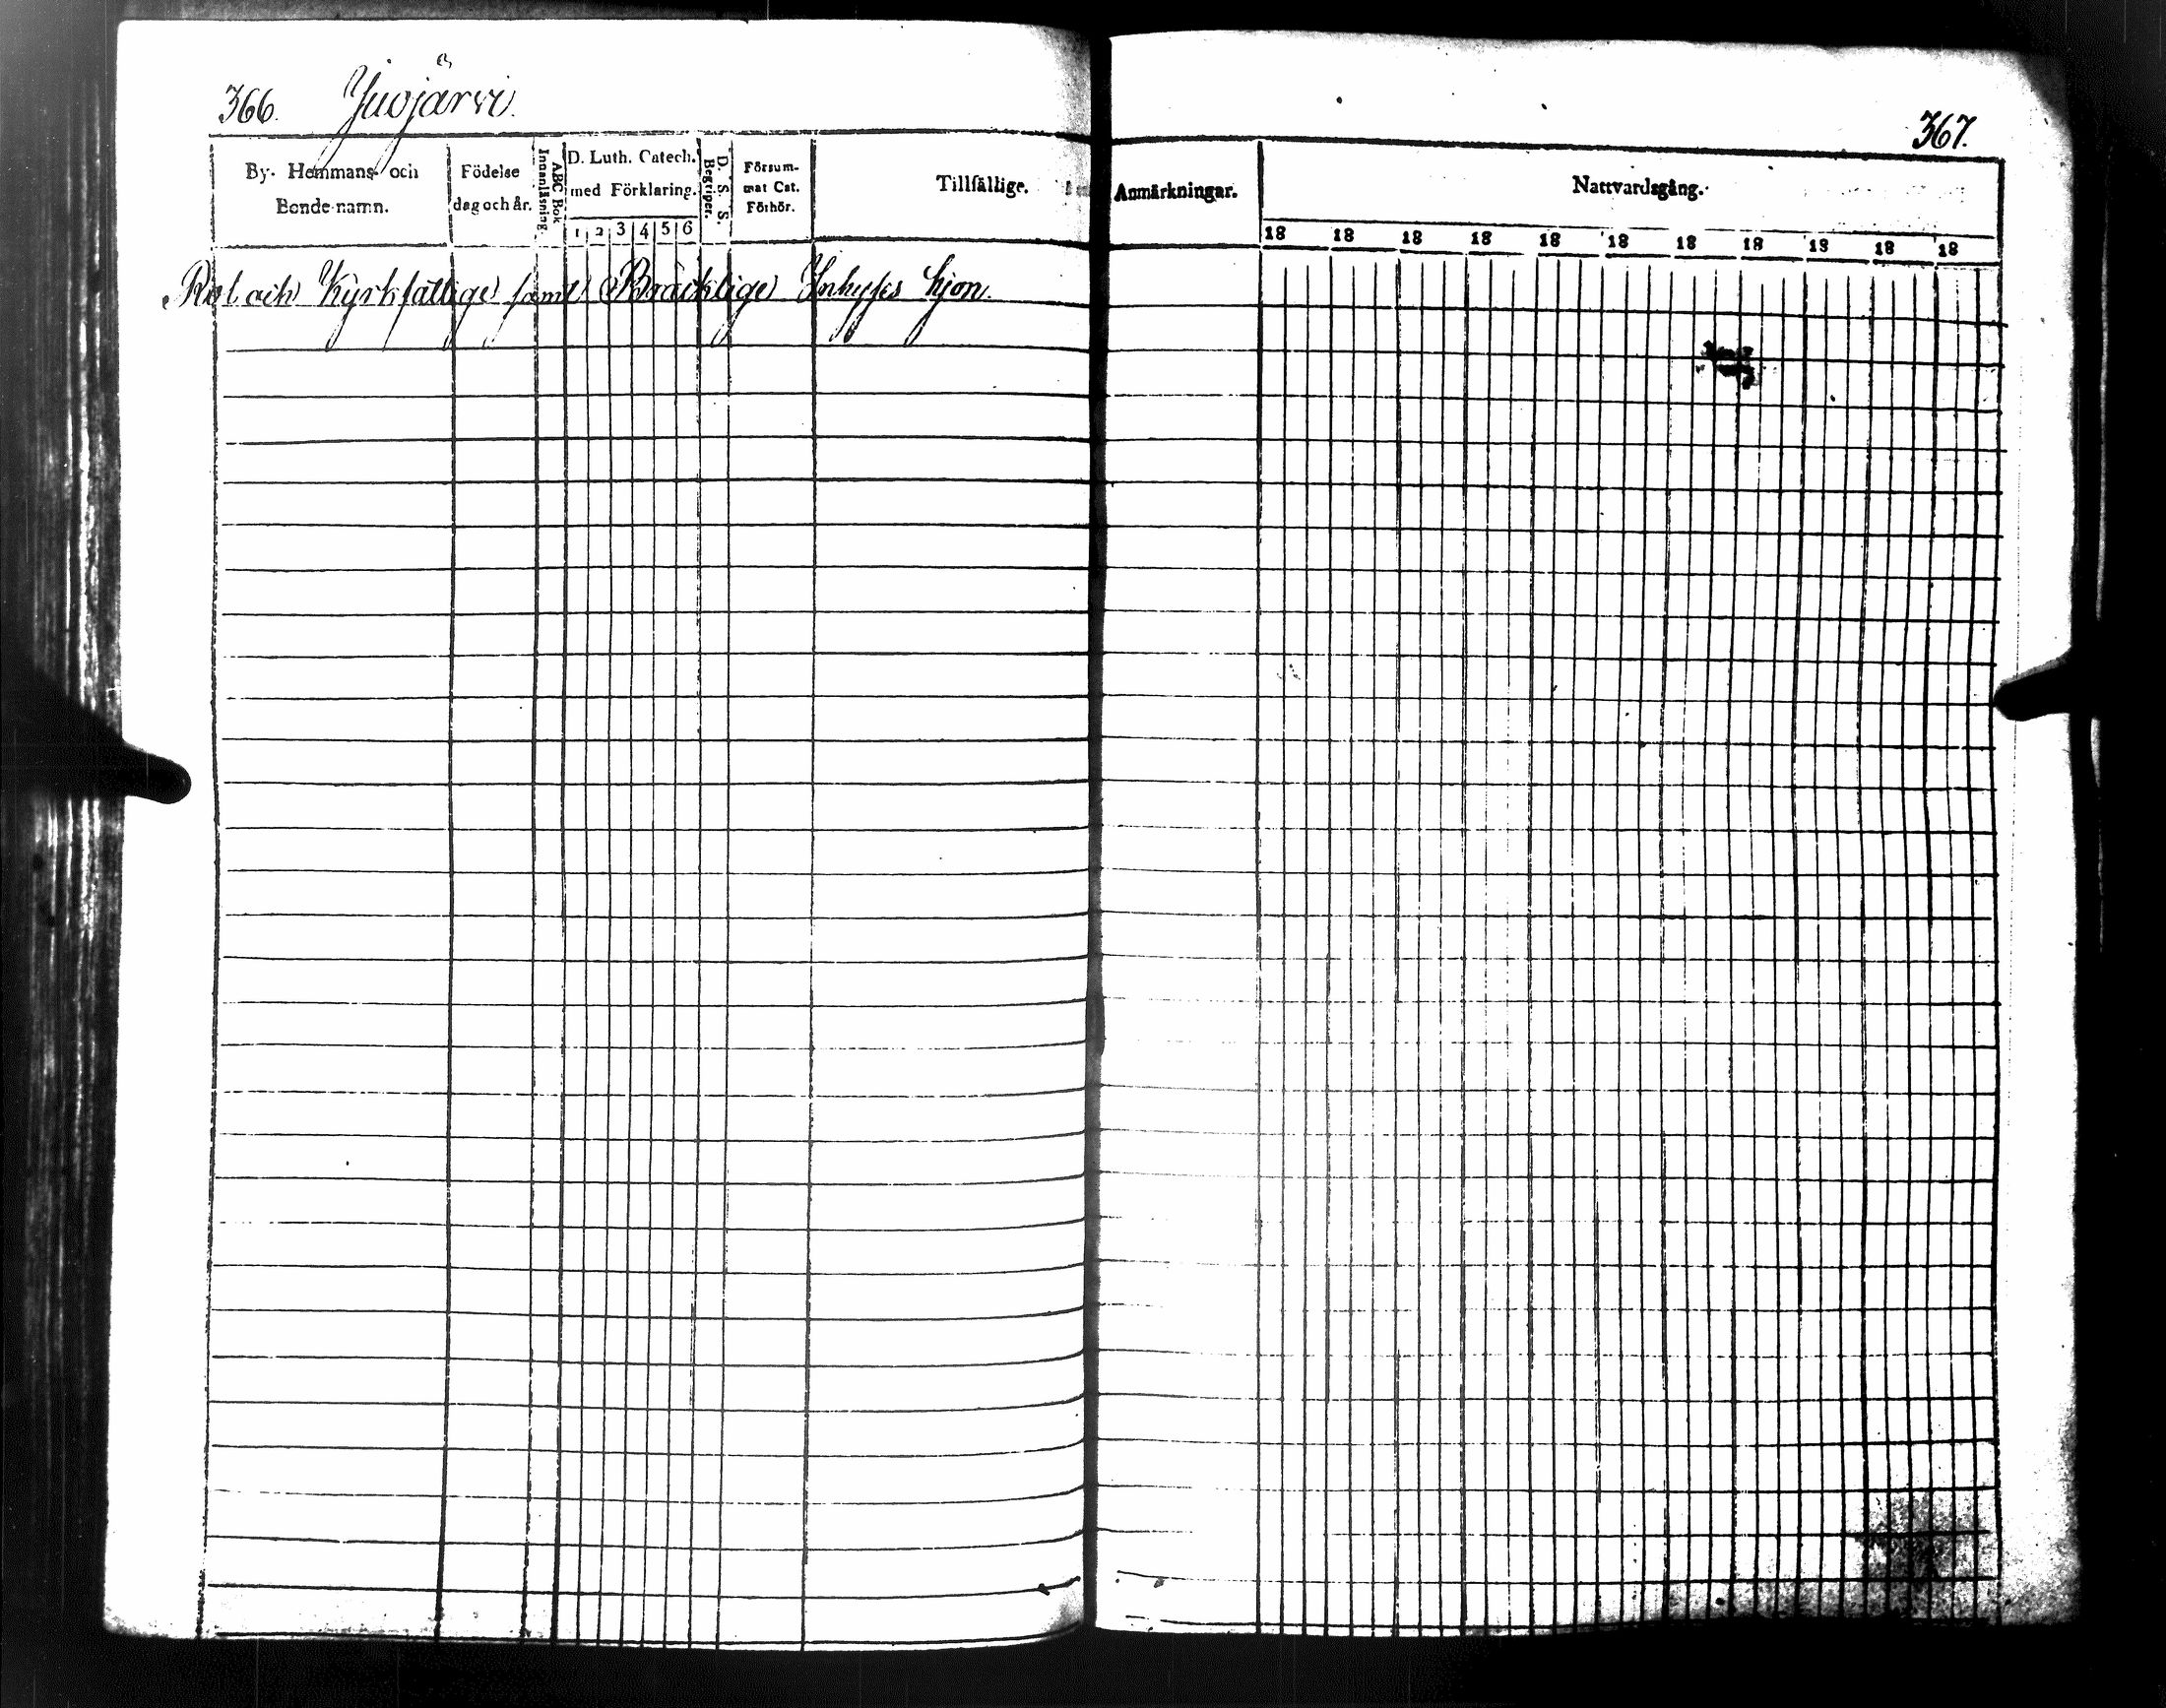 366. Juojärvi.
367.
By- Hemmans- och Bonde-namn.
Födelse dag och år.
ABC Bok Innanläsning.
D. Luth. Catech. med Förklaring.
1 2 3 4 5 6
D. S. S. Begriper.
Försummat Cat. Förhör.
Tillfällige.
Anmärkningar.
Nattvardsgång.
18 18 18 18 18 18 18 18 18 18 18
Rot och Kyrkfattige samt Bräcklige Inhyses hjon.